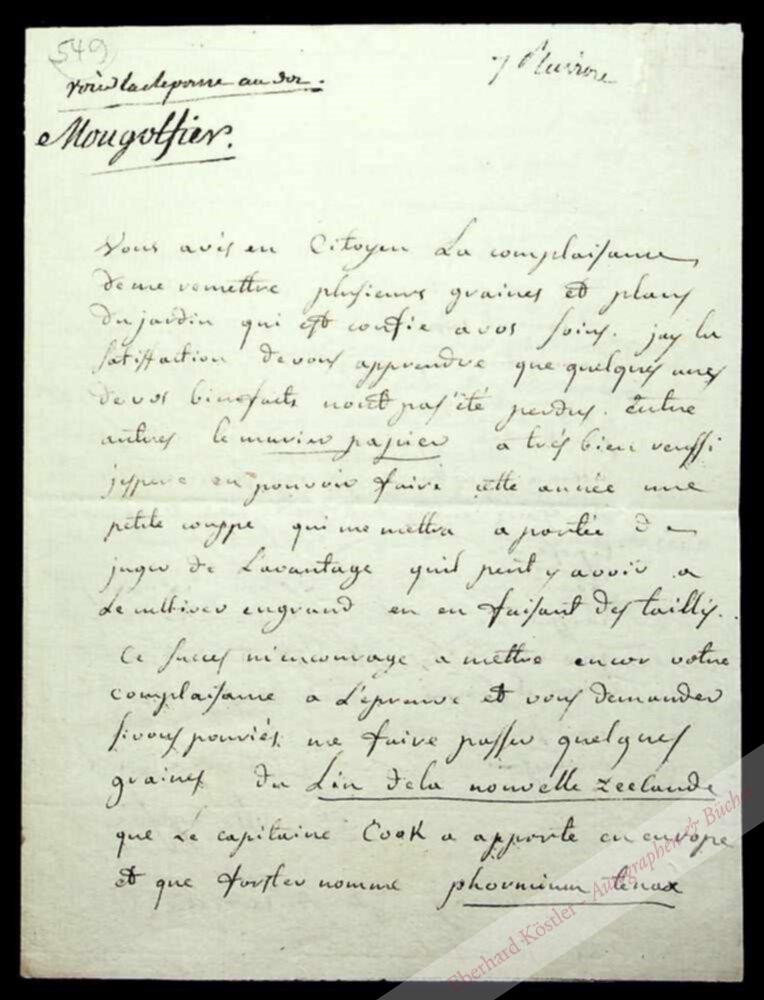 549
7 Pluviose
voies la reponse au dos.
Mongolfier.
Vous avés eu Citoyen La complaisance
de me remettre plusieurs graines et plans
du jardin qui est confie a vos soins. jay la
satisffaction de vous apprendre que quelques unes
de vos bienfaits nont pas été perdus. entre
autres le murier papier a trés bien reussi
jesspere en pouvoir faire cette année une
petite couppe qui me mettra a portée de
juger de L'avantage quil peut y avoir a
Le cultiver en grand en en faisant des taillis.
Ce succes m'encourage a mettre encor votre
complaisance a L'epreuve et vous demander
si vous pouviés me faire passer quelques
graines du Lin de la nouvelle Zeelande
que Le capitaine Cook a apporte en europe
et que forster nomme phormium tenax
Eberhard Köstler - Autographen & Bücher